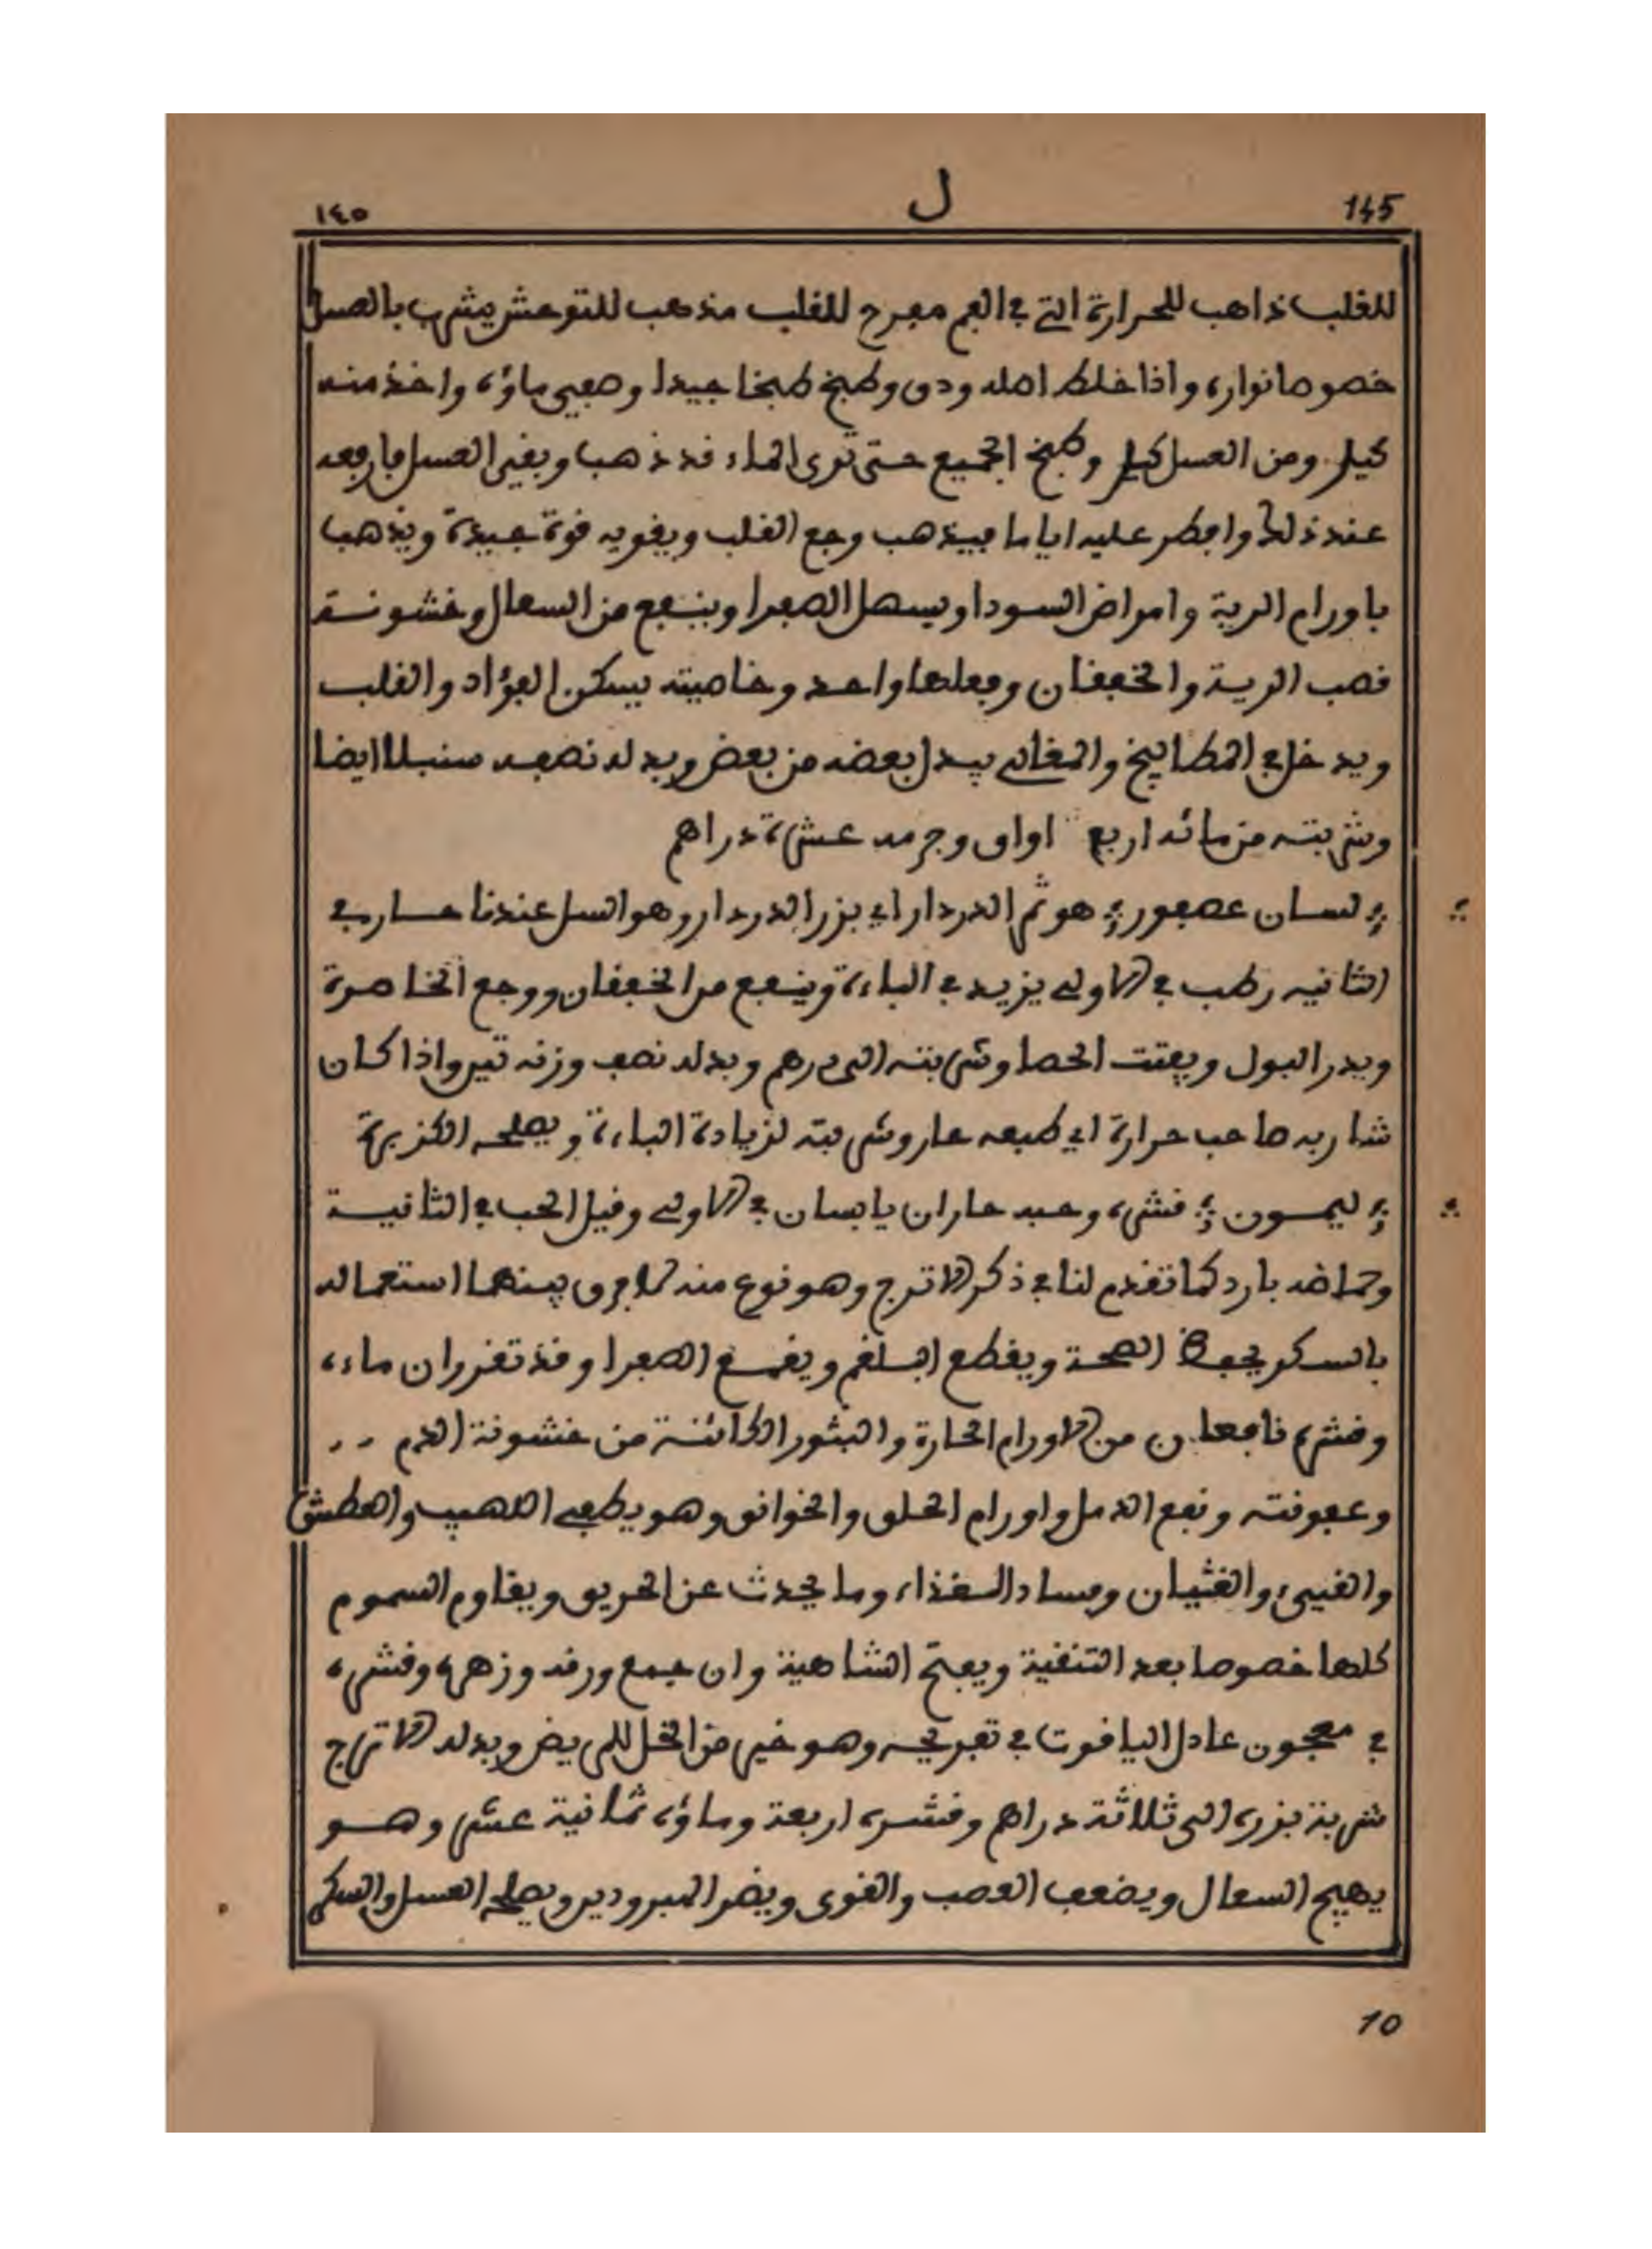 145 ل ١٤٥
للقلب ذاهب للحرارة التي في الفم مفرح للقلب مذهب للتوحش يشرب بالعسل
خصوصا نواره واذا خلط اصله ودق وطبخ طبخا جيدا وصفيى ماؤه واخذ منه
كيل ومن العسل كيل وطبخ الجميع حتى ترى الماء قد ذهب وبقى العسل فارفعه
عند ذلك وافطر عليه اياما فيذهب وجع القلب ويقويه قوة جيدة ويذهب
باورام الرية وامراض السودا ويسهل الصفرا وينفع من السعال وخشونة
قصب الرية والخفقان وفعلها واحد وخاصيته يسكن الفؤاد والقلب
ويدخل في المطابيخ والمغالي يبدل بعضه من بعض وبدله نصفه سنبلا ايضا
وشربته من مائه اربع اواق وجرمه عشرة دراهم
لسان عصفور هو ثمر الدردار اي بزر الدردار وهو اسل عندنا حار في
الثانيه رطب في الاولى يزيد في الباءة وينفع من الخفقان ووجع الخاصرة
ويدر البول ويفتت الحصا وشربته الى درهم وبدله نصف وزنه تين واذا كان
شاربه صاحب حرارة اي طبعه حار وشربته لزيادة الباءة ويصلحه الكزبرة
ليمون قشره وحبه حاران يابسان في الاولى وقيل الحب في الثانية
وحماضه بارد كما تقدم لنا في ذكر الاترج وهو نوع منه لا فرق بينهما استعماله
بالسكر يحفظ الصحة ويقطع البلغم ويقمع الصفرا وقد تقرر ان ماءه
وقشره نافعان من الاورام الحارة والبثور الكائنة من خشونة الدم
وعفونته ونفع الدمل واورام الحلق والخوانق وهو يطفي اللهيب والعطش
والقيىء والغثيان وفساد الغذاء وما يحدث عن الحريق ويقاوم السموم
كلها خصوصا بعد التنقية ويفتح الشاهية وان جمع ورقه وزهره وقشره
في معجون عادل الياقوت في تفريحه وهو خير من الخل للمريض وبدله الاترج
شربة بزره الى ثلاثة دراهم وقشره اربعة وماؤه ثمانية عشر وهو
يهيج السعال ويضعف العصب والقوى ويضر المبرودين ويصلحه العسل والسكر
10